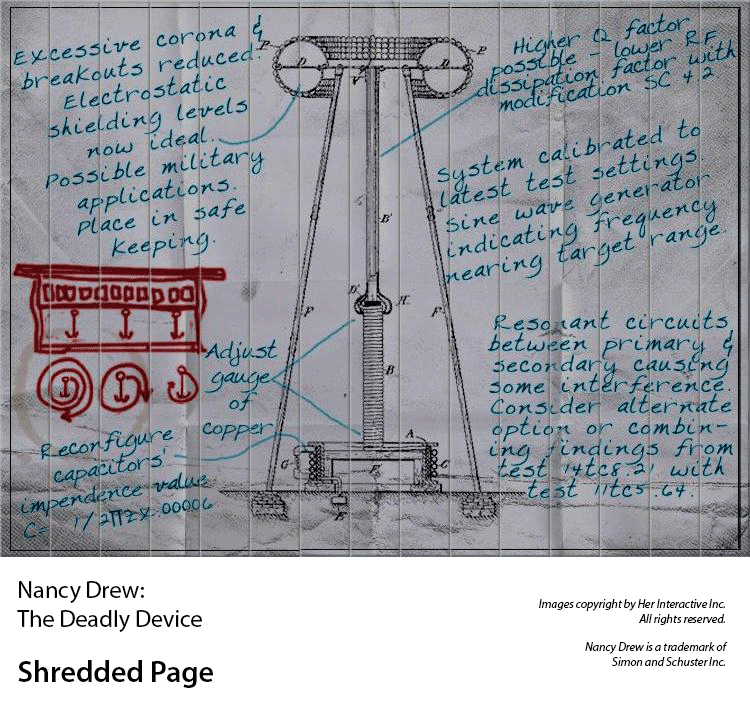 Excessive corona &
breakouts reduced.
Electrostatic
shielding levels
now ideal.
Possible military
applications.
Place in safe
keeping.
Higher Q factor
possible – lower RF
dissipation factor with
modification SC 42
System calibrated to
latest test settings.
Sine wave generator
indicating frequency
nearing target range.
Adjust
gauge
of
copper
Resonant circuits
between primary &
secondary causing
some interference.
Consider alternate
option or combin-
ing findings from
test 14tc8.21 with
test 11tc5.64.
Reconfigure
capacitors'
impendence value
C= 1/2π2x.00006
P
D
D
P
V
B'
F
F
D'
H
B
A
G
C
E
E'
Nancy Drew:
The Deadly Device
Shredded Page
Images copyright by Her Interactive Inc.
All rights reserved.
Nancy Drew is a trademark of
Simon and Schuster Inc.